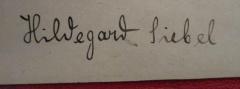 Hildegard Siebel